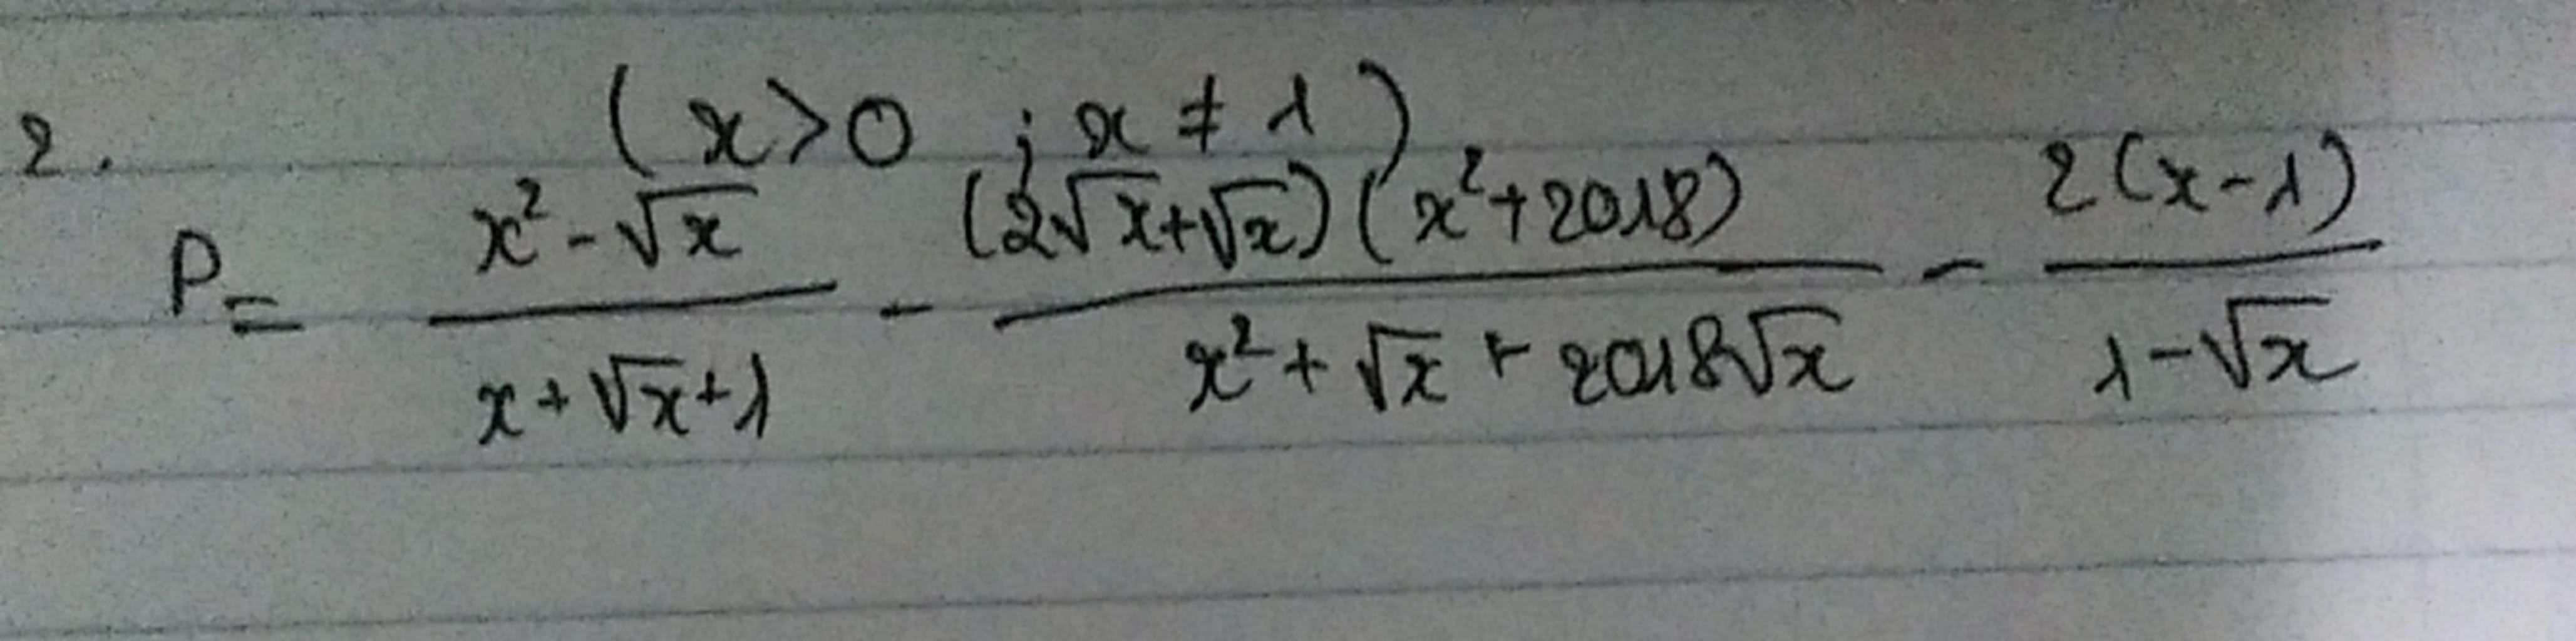 2. (x>0 ; x ≠ 1)
P = \frac{x² - √x}{x + √x + 1} - \frac{(2√x + √x)(x² + 2018)}{x² + √x + 2018√x} - \frac{2(x - 1)}{1 - √x}